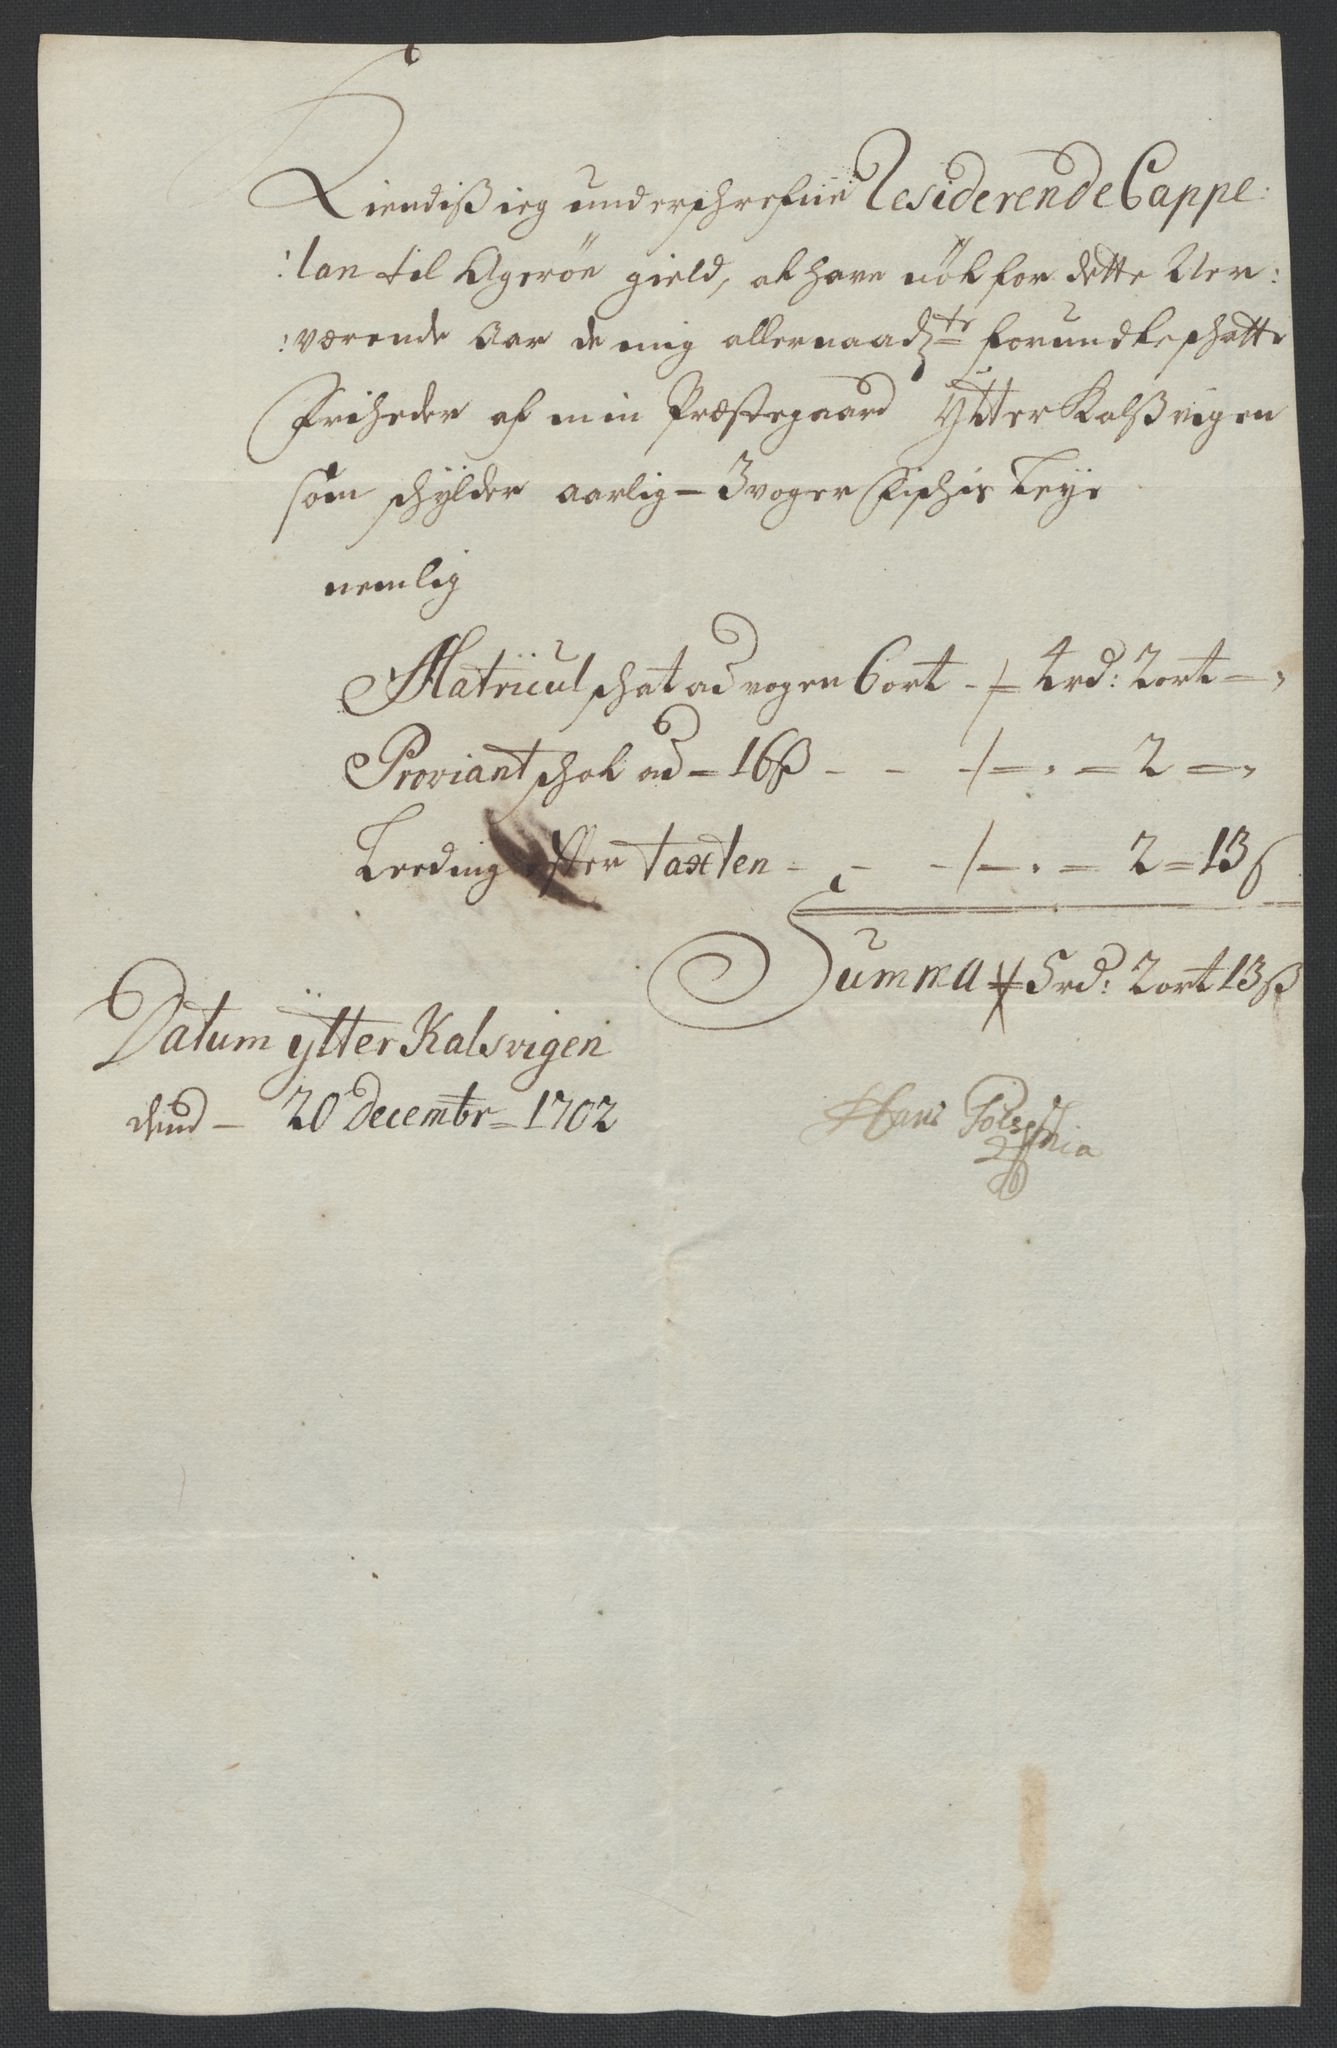 Kiendiß ieg underschrefne Residerende Cappe:
:lan til Agerøn gield, at have nøt for dette Ner:
:værende Aar de mig allernaadste forundte schatte
Friheder af min Præstegaard Ytter Kalßvigen
som schylder aarlig - 3 voger Fischis Leye
nemlig
Matricul schat ad vogen 6 ort - /- 4 rd: 2 ort -
Proviant schat ad - 16 ß - - /- . - 2 -
Leeding efter taxten - - /- . - 2 - 13 ß
Summa 5 rd: 2 ort 13 ß
Datum ytter Kalsvigen
dend - 20 Decembr - 1702
Hans